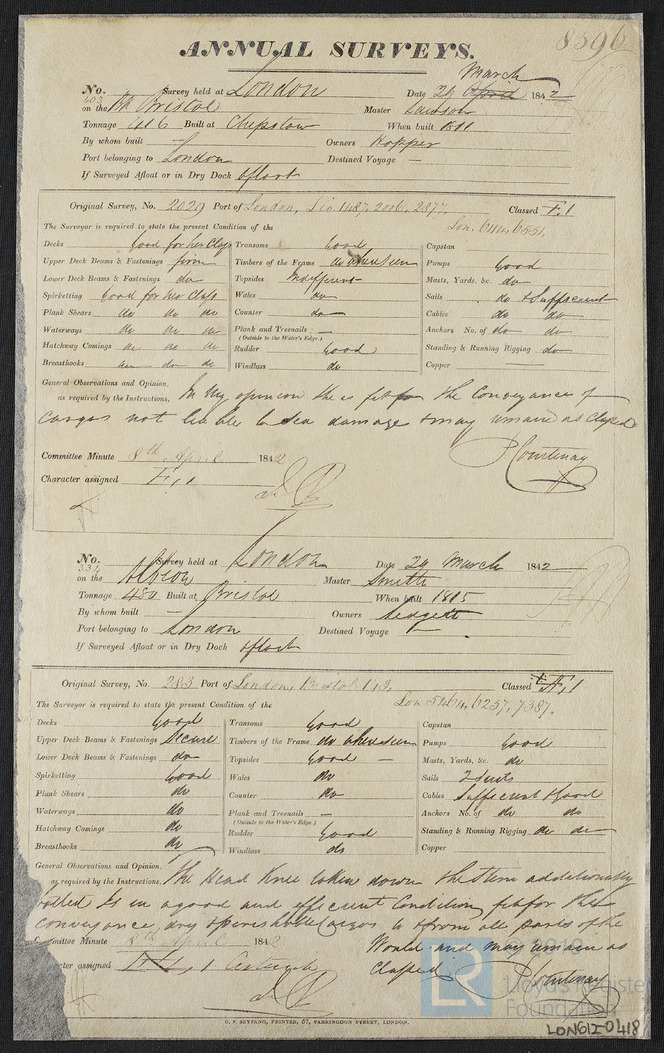 8596
ANNUAL SURVEYS.
No. 403 Survey held at London Date 24 March 1842
on the Bk Bristol Master
Tonnage 416 Built at Chepstow When built 1811
By whom built — Owners Hopper
Port belonging to London Destined Voyage —
If Surveyed Afloat or in Dry Dock Afloat
Original Survey, No. 2029 Port of London, Liv 1487, 2006, 2877, Classed Æ 1
The Surveyor is required to state the present Condition of the Lon. 6111, 6551.
Decks Good for her Class Transoms Good Capstan
Upper Deck Beams & Fastenings firm Timbers of the Frame do where seen Pumps Good
Lower Deck Beams & Fastenings do Topsides Indifferent Masts, Yards, &c. do
Spirketting Good for her Class Wales do Sails do & Sufficient
Plank Shears do do do Counter do Cables do do
Waterways do do do Plank and Treenails — Anchors No. of do do
(Outside to the Water's Edge.)
Hatchway Comings do do do Rudder Good Standing & Running Rigging do
Breasthooks do do do Windlass do Copper —
General Observations and Opinion,
as required by the Instructions, In my opinion she is fit for the Conveyance of
Cargos not liable to Sea damage & may remain as Classed
P Courtenay
Committee Minute 8th April 1842
Character assigned Æ 1
No. 334 Survey held at London Date 24 March 1842
on the Albion Master Smith
Tonnage 480 Built at Bristol When built 1815
By whom built — Owners
Port belonging to London Destined Voyage —
If Surveyed Afloat or in Dry Dock Afloat
Original Survey, No. 283 Port of London, Bristol 113, Classed Æ 1
The Surveyor is required to state the present Condition of the Lon 5464, 6257, 7387.
Decks Good Transoms Good Capstan
Upper Deck Beams & Fastenings Secure Timbers of the Frame do where seen Pumps Good
Lower Deck Beams & Fastenings do Topsides Good — Masts, Yards, &c. do
Spirketting Good Wales do Sails 2 Suits
Plank Shears do Counter do Cables Sufficient & Good
Waterways do Plank and Treenails — Anchors No. of do do
(Outside to the Water's Edge.)
Hatchway Comings do Rudder Good Standing & Running Rigging do do
Breasthooks do Windlass do Copper
General Observations and Opinion,
as required by the Instructions, The Head Knee taken down the Stem additionally
bolted Is in a good and efficient Condition, fit for the
conveyance, dry & perishable Cargos to & from all parts of the
World and may remain as
Classed P Courtenay
Committee Minute 8th April 1842
cter assigned Æ 1
C. F. SEYFANG, PRINTER, 57, FARRINGDON STREET, LONDON.
LR
Lloyd's Register
Foundation
LON612-0418